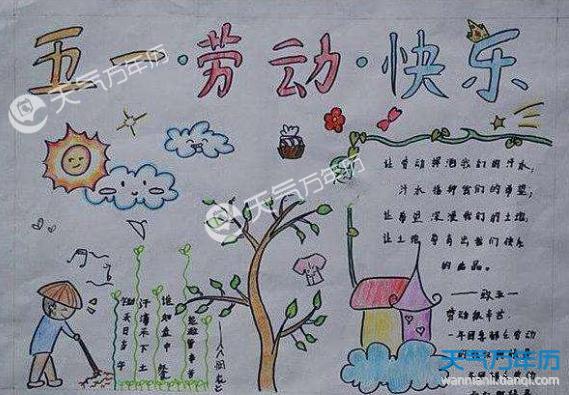 五一·劳动·快乐
让劳动挥洒我们的汗水,
汗水播种我们的希望,
让希望浸漫我们的土地,
让土地孕育出我们快乐
的
锄禾日当午
汗滴禾下土
谁知盘中餐
粒粒皆辛苦
一年四季都在劳动
天气万年历
天气万年历
天气万年历
wannianli.tianqi.com